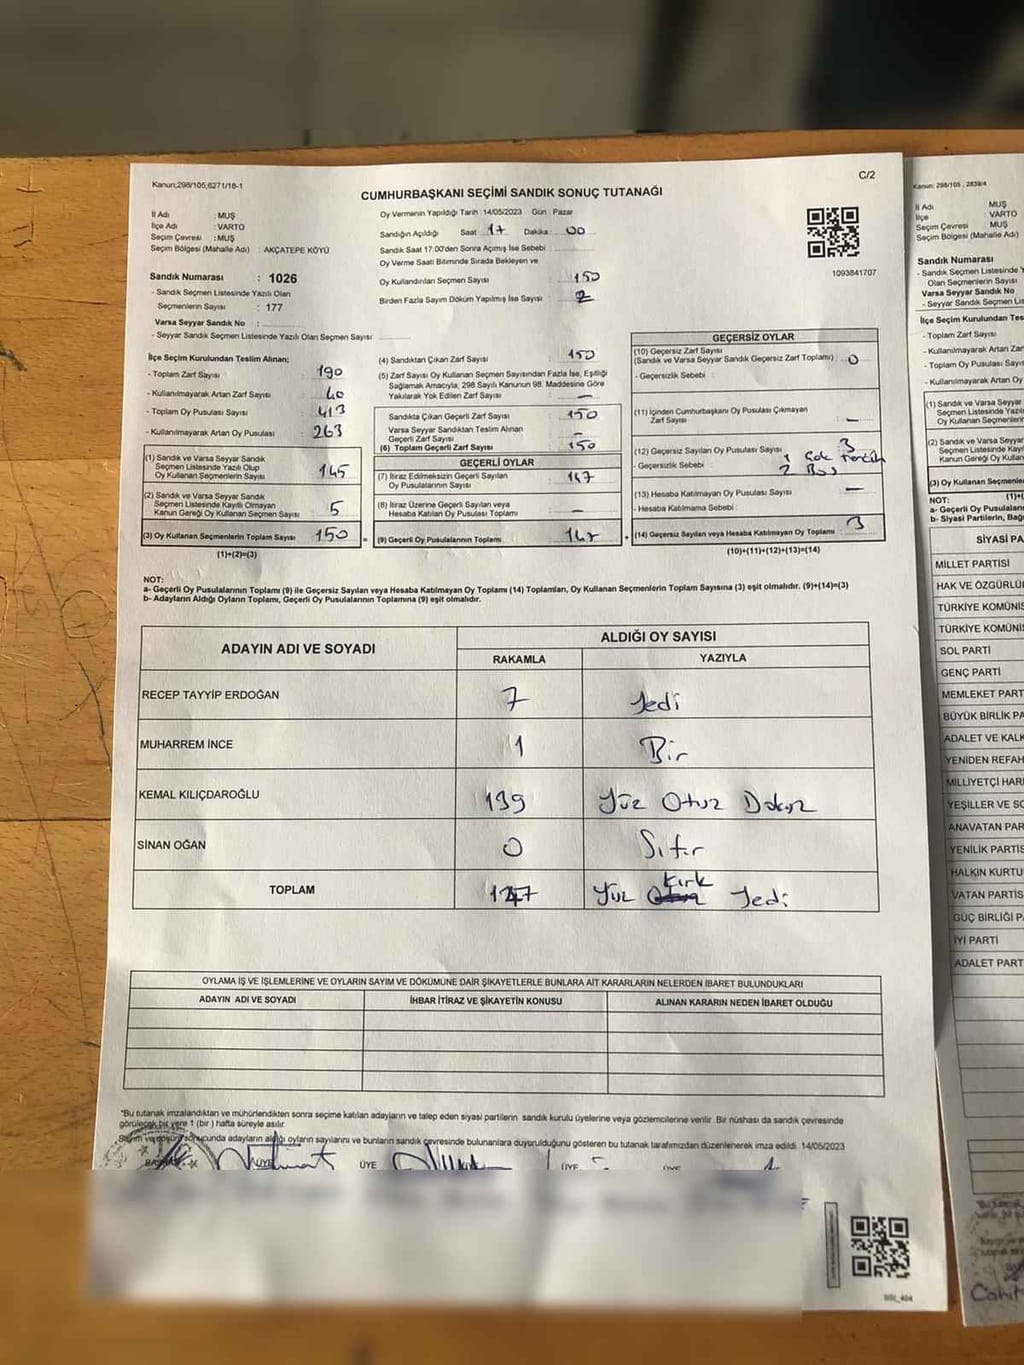 Kanun;298/105,6271/18-1
C/2
CUMHURBAŞKANI SEÇİMİ SANDIK SONUÇ TUTANAĞI
İl Adı : MUŞ
İlçe Adı : VARTO
Seçim Çevresi : MUŞ
Seçim Bölgesi (Mahalle Adı) : AKÇATEPE KÖYÜ
Sandık Numarası : 1026
- Sandık Seçmen Listesinde Yazılı Olan
Seçmenlerin Sayısı : 177
Varsa Seyyar Sandık No :
- Seyyar Sandık Seçmen Listesinde Yazılı Olan Seçmen Sayısı :
Oy Vermenin Yapıldığı Tarih :14/05/2023 Gün : Pazar
Sandığın Açıldığı Saat 17 Dakika : 00
Sandık Saat 17.00'den Sonra Açımış İse Sebebi :
Oy Verme Saati Bitiminde Sırada Bekleyen ve
Oy Kullandırılan Seçmen Sayısı : 150
Birden Fazla Sayım Döküm Yapılmış İse Sayısı : 2
1093841707
İlçe Seçim Kurulundan Teslim Alınan;
- Toplam Zarf Sayısı : 190
- Kullanılmayarak Artan Zarf Sayısı : 40
- Toplam Oy Pusulası Sayısı : 413
- Kullanılmayarak Artan Oy Pusulası : 263
(1) Sandık ve Varsa Seyyar Sandık
Seçmen Listesinde Yazılı Olup
Oy Kullanan Seçmenlerin Sayısı : 145
(2) Sandık ve Varsa Seyyar Sandık
Seçmen Listesinde Kayıtlı Olmayan
Kanun Gereği Oy Kullanan Seçmen Sayısı : 5
(3) Oy Kullanan Seçmenlerin Toplam Sayısı : 150
(1)+(2)=(3)
(4) Sandıktan Çıkan Zarf Sayısı : 150
(5) Zarf Sayısı Oy Kullanan Seçmen Sayısından Fazla İse, Eşitliği
Sağlamak Amacıyla; 298 Sayılı Kanunun 98. Maddesine Göre
Yakılarak Yok Edilen Zarf Sayısı : —
Sandıkta Çıkan Geçerli Zarf Sayısı : 150
Varsa Seyyar Sandıktan Teslim Alınan
Geçerli Zarf Sayısı : —
(6) Toplam Geçerli Zarf Sayısı : 150
GEÇERLİ OYLAR
(7) İtiraz Edilmeksizin Geçerli Sayılan
Oy Pusulalarının Sayısı : 147
(8) İtiraz Üzerine Geçerli Sayılan veya
Hesaba Katılan Oy Pusulası Toplamı : —
(9) Geçerli Oy Pusulalarının Toplamı : 147
GEÇERSİZ OYLAR
(10) Geçersiz Zarf Sayısı
(Sandık ve Varsa Seyyar Sandık Geçersiz Zarf Toplamı) : 0
- Geçersizlik Sebebi :
(11) İçinden Cumhurbaşkanı Oy Pusulası Çıkmayan
Zarf Sayısı : —
(12) Geçersiz Sayılan Oy Pusulası Sayısı : 3
- Geçersizlik Sebebi : 1 Çok tercih
2 Boş
(13) Hesaba Katılmayan Oy Pusulası Sayısı : —
- Hesaba Katılmama Sebebi :
(14) Geçersiz Sayılan veya Hesaba Katılmayan Oy Toplamı : 3
(10)+(11)+(12)+(13)=(14)
NOT:
a- Geçerli Oy Pusulalarının Toplamı (9) ile Geçersiz Sayılan veya Hesaba Katılmayan Oy Toplamı (14) Toplamları, Oy Kullanan Seçmenlerin Toplam Sayısına (3) eşit olmalıdır. (9)+(14)=(3)
b- Adayların Aldığı Oyların Toplamı, Geçerli Oy Pusulalarının Toplamına (9) eşit olmalıdır.
ADAYIN ADI VE SOYADI
ALDIĞI OY SAYISI
RAKAMLA YAZIYLA
RECEP TAYYİP ERDOĞAN 7 Yedi
MUHARREM İNCE 1 Bir
KEMAL KILIÇDAROĞLU 139 Yüz Otuz Dokuz
SİNAN OĞAN 0 Sıfır
TOPLAM 147 Yüz Kırk Yedi
OYLAMA İŞ VE İŞLEMLERİNE VE OYLARIN SAYIM VE DÖKÜMÜNE DAİR ŞİKAYETLERLE BUNLARA AİT KARARLARIN NELERDEN İBARET BULUNDUKLARI
ADAYIN ADI VE SOYADI İHBAR İTİRAZ VE ŞİKAYETİN KONUSU ALINAN KARARIN NEDEN İBARET OLDUĞU
*Bu tutanak imzalandıktan ve mühürlendikten sonra seçime katılan adayların ve talep eden siyasi partilerin sandık kurulu üyelerine veya gözlemcilerine verilir. Bir nüshası da sandık çevresinde
görülecek bir yere 1 (bir ) hafta süreyle asılır.
Sayım ve döküm sonucunda adayların aldığı oyların sayılarını ve bunların sandık çevresinde bulunanlara duyurulduğunu gösteren bu tutanak tarafımızdan düzenlenerek imza edildi. 14/05/2023
BAŞKAN ÜYE ÜYE ÜYE ÜYE
Kanun: 298/105 , 2839/4
İl Adı MUŞ
İlçe VARTO
Seçim Çevresi MUŞ
Seçim Bölgesi (Mahalle Adı)
Sandık Numarası
- Sandık Seçmen Listesinde
Olan Seçmenlerin Sayısı
Varsa Seyyar Sandık No
- Seyyar Sandık Seçmen
İlçe Seçim Kurulundan
- Toplam Zarf Sayısı
- Kullanılmayarak Artan
- Toplam Oy Pusulası
- Kullanılmayarak Artan
(1) Sandık ve Varsa
Seçmen Listesinde
Oy Kullanan
(2) Sandık ve Varsa
Seçmen Listesinde
Kanun Gereği Oy
(3) Oy Kullanan
NOT:
a- Geçerli Oy
b- Siyasi Partilerin,
SİYASİ
MİLLET PARTİSİ
HAK VE
TÜRKİYE
TÜRKİYE
SOL PARTİ
GENÇ PARTİ
MEMLEKET
BÜYÜK BİRLİK
ADALET VE
YENİDEN REFAH
MİLLİYETÇİ
YEŞİLLER VE
ANAVATAN
YENİLİK
HALKIN
VATAN
GÜÇ BİRLİĞİ
İYİ PARTİ
ADALET